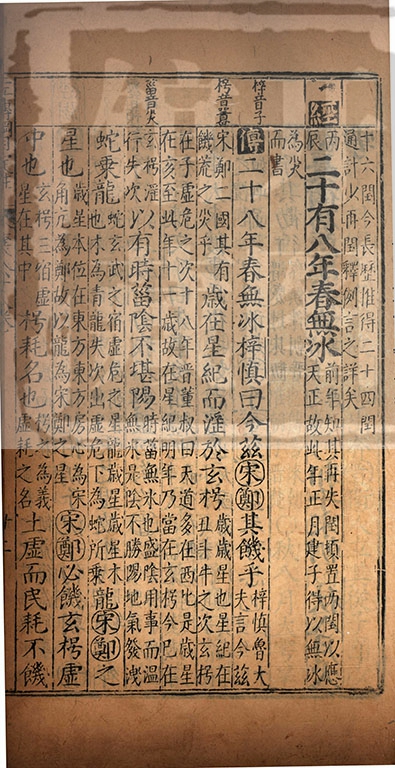 十六閏今長歷推得二十四閏
通計少再閏釋例言之詳矣
經
丙辰
二十有八年春無冰
前年知其再失閏頓置兩閏以應
天正故此年正月建子得以無冰
為災
而書
梓音子
傳二十八年春無冰梓慎曰今兹宋鄭其饑乎
梓慎魯大
夫言今兹
枵音囂
宋鄭二國其有
饑荒之災乎
歲在星紀而淫於玄枵
歲歲星也星紀在
丑斗牛之次玄枵
在子虛危之次十八年晉董叔曰天道多在西北是歲星
在亥至此年十一歲故在星紀明年乃當在玄枵今已在
菑音災
玄枵淫
行失次
以有時菑陰不堪陽
時菑無冰也盛陰用事而溫
無冰是陰不勝陽地氣發洩
蛇乘龍
蛇玄武之宿虛危之星龍歲星歲星木
也木為青龍失次出虛危下為蛇所乘
龍宋鄭之
星也
歲星本位在東方東方房心為宋
角亢為鄭故以龍為宋鄭之星
宋鄭必饑玄枵虛
中也
玄枵三宿虛
星在其中
枵耗名也
枵之為義
虛耗之名
土虛而民耗不饑